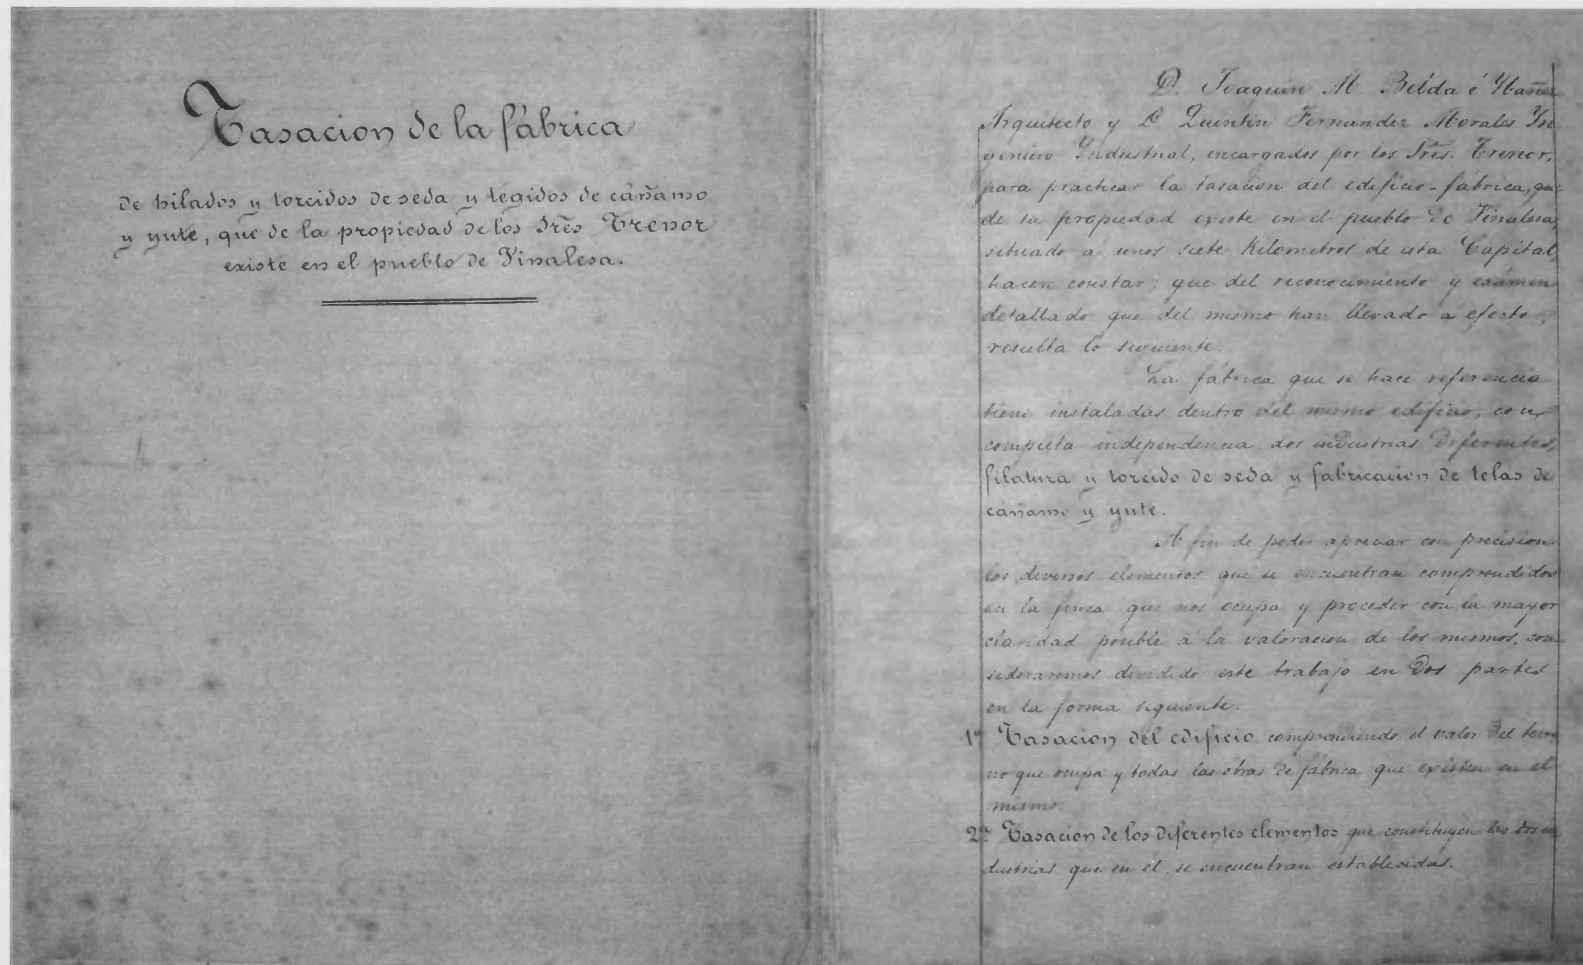 Tasacion de la fábrica
de hilados y torcidos de seda y tegidos de cáñamo
y yute, que de la propiedad de los Sres Trenor
existe en el pueblo de Vinalesa.
D. Joaquin M. Belda é Ybañez
Arquitecto y D. Quintin Fernandez Morales Yn
geniero Yndustrial, encargados por los Sres. Trenor,
para practicar la tasacion del edificio-fábrica, que
de su propiedad existe en el pueblo de Vinalesa,
situado á unos siete Kilometros de esta Capital,
hacen constar: que del reconocimiento y exámen
detallado que del mismo han llevado á efecto,
resulta lo siguiente.
La fábrica que se hace referencia
tiene instaladas dentro del mismo edificio, con
completa independencia, dos industrias diferentes,
filatura y torcido de seda y fabricacion de telas de
cáñamo y yute.
A fin de poder apreciar con precision
los diversos elementos que se encuentran comprendidos
en la finca que nos ocupa y proceder con la mayor
claridad posible á la valoracion de los mismos, con
sideraremos dividido este trabajo en dos partes
en la forma siguiente.
1ª Tasacion del edificio comprendiendo el valor del terre
no que ocupa y todas las obras de fábrica que existen en el
mismo.
2ª Tasacion de los diferentes elementos que constituyen las dos in
dustrias que en él se encuentran establecidas.